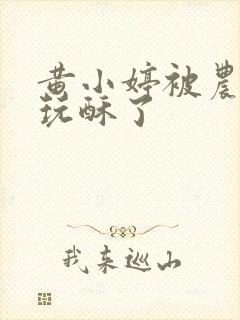 黄小婷被農
玩酥了
我来巡山